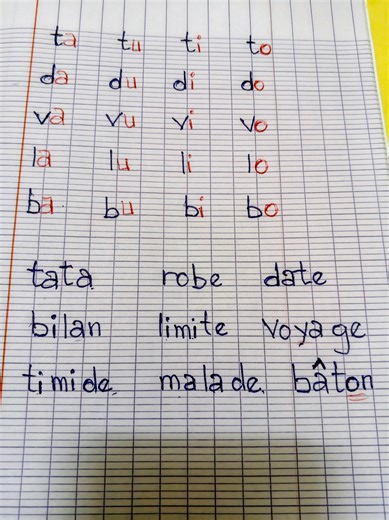 ta tu ti to
da du di do
va vu vi vo
la lu li lo
ba bu bi bo
tata robe date
bilan limite voyage
timide malade bâton